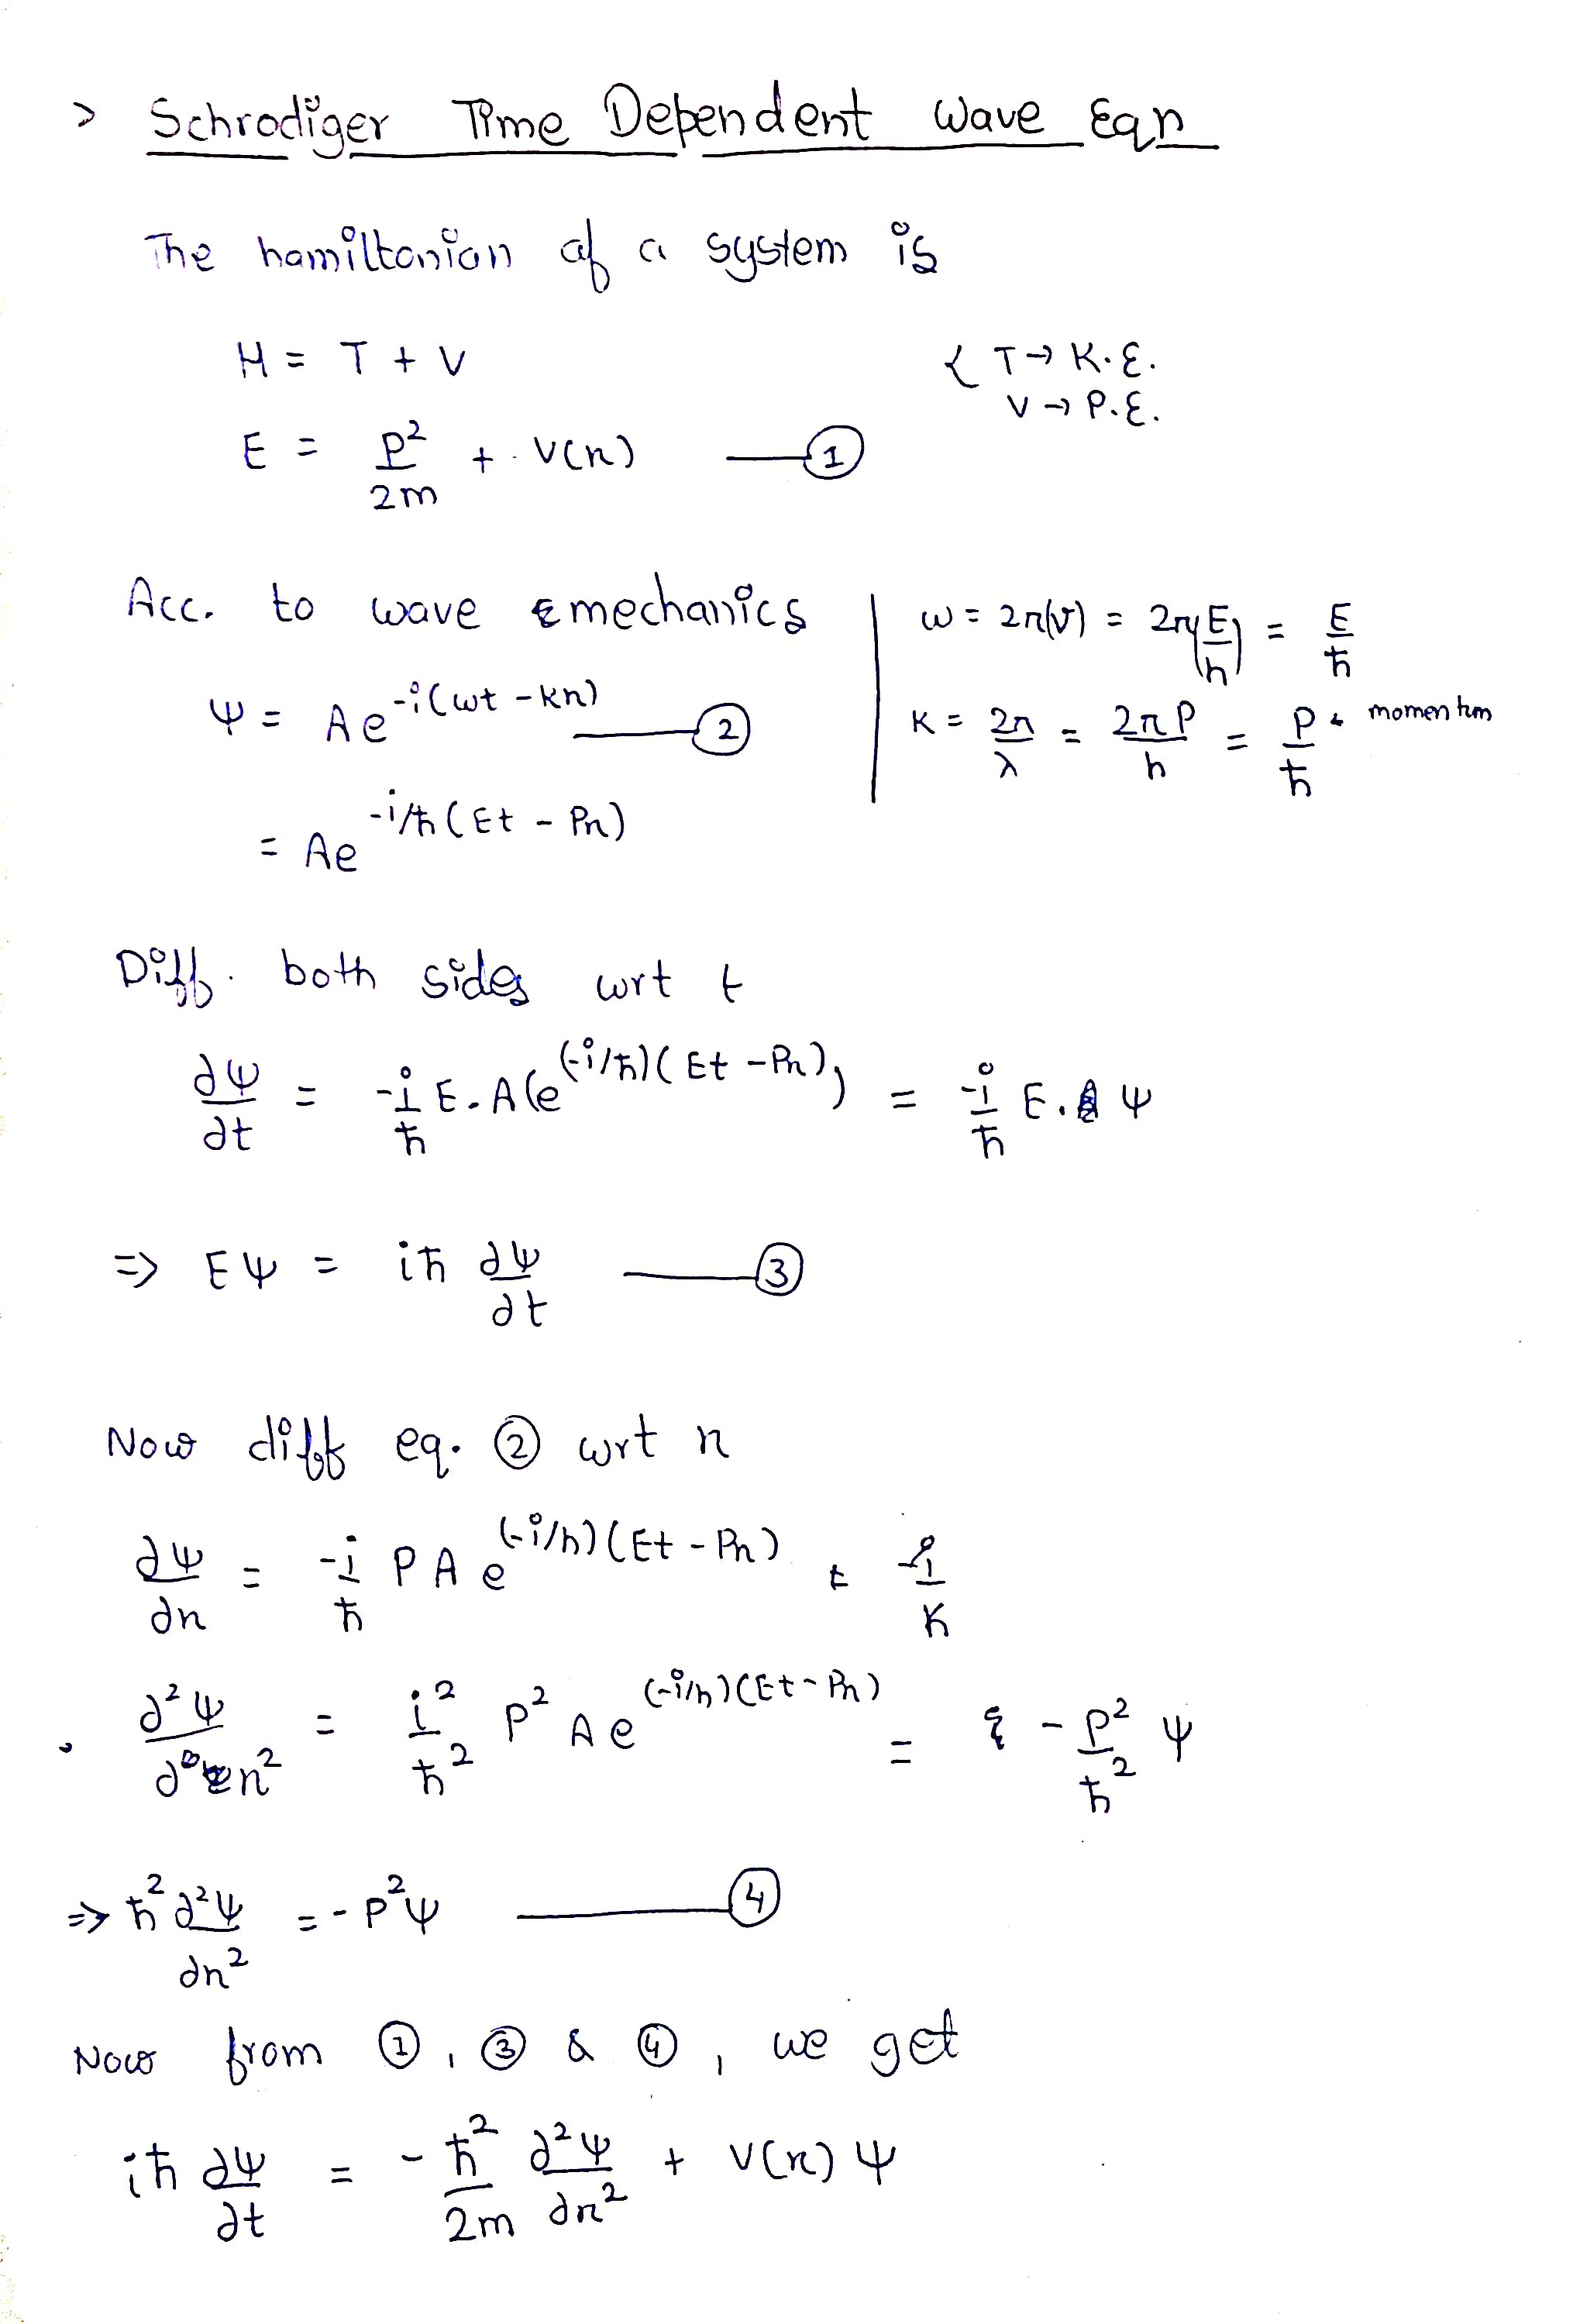 > Schrodiger Time Dependent Wave Eqn
The hamiltonian of a system is
H = T + V { T → K.E.
V → P.E.
E = P²/2m + V(x) —— ①
Acc. to wave mechanics
ω = 2π(ν) = 2π(E/h) = E/ħ
ψ = Ae^{-i(ωt - kx)} —— ②
K = 2π/λ = 2πP/h = P/ħ ← momentum
= Ae^{-i/ħ(Et - Px)}
Diff. both sides wrt t
∂ψ/∂t = -i/ħ E.A(e^{(-i/ħ)(Et - Px)}) = -i/ħ E.ψ
=> Eψ = iħ ∂ψ/∂t —— ③
Now diff eq. ② wrt x
∂ψ/∂x = -i/ħ P A e^{(-i/h)(Et - Px)}
∂²ψ/∂x² = i²/ħ² P² A e^{(-i/h)(Et - Px)} = -P²/ħ² ψ
=> ħ² ∂²ψ/∂x² = -P²ψ —— ④
Now from ①, ③ & ④, we get
iħ ∂ψ/∂t = -ħ²/2m ∂²ψ/∂x² + V(x) ψ